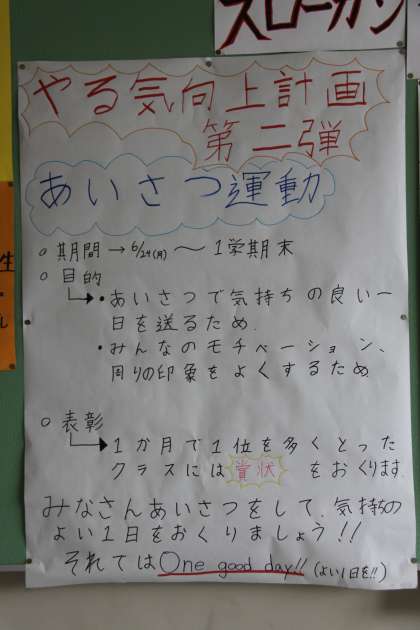 スローガン
やる気向上計画
第二弾
あいさつ運動
○ 期間 → 6/24(月) 〜 1学期末
○ 目的
・あいさつで気持ちの良い一
日を送るため.
・みんなのモチベーション、
周りの印象をよくするため
○ 表彰
1か月で1位を多くとった
クラスには賞状 をおくります.
みなさんあいさつをして、気持ちの
よい1日をおくりましょう!!
それではOne good day!! (よい1日を!!)
生
ル